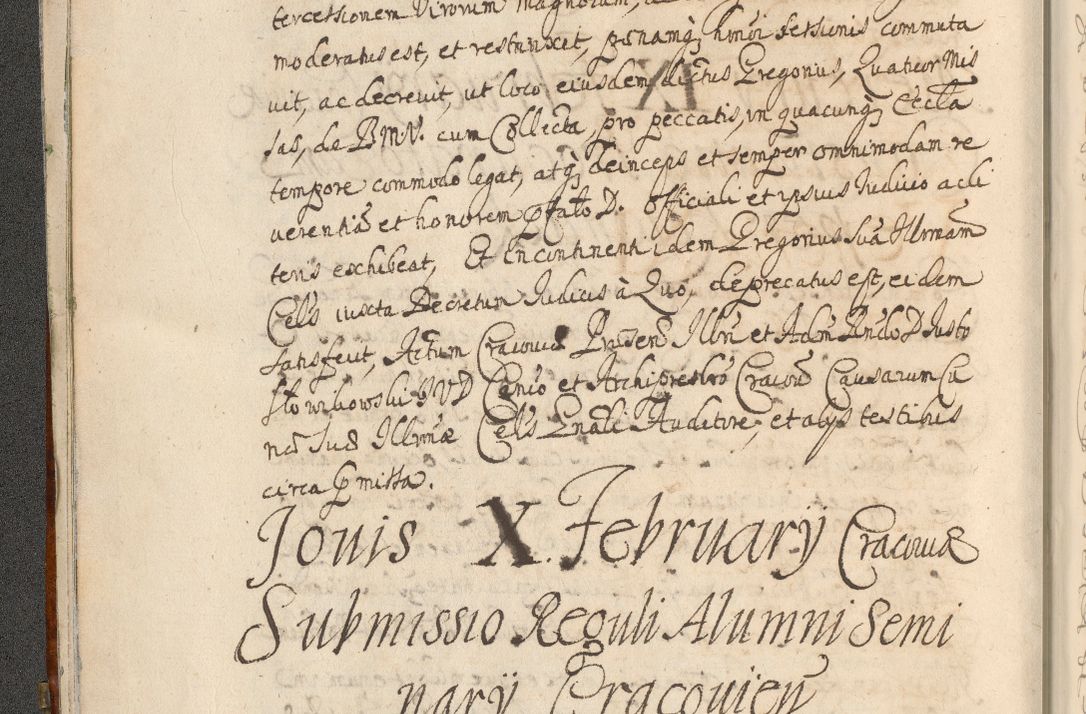 tercessionem Virorum magnorum,
moderatus est, et restrinxit, pœnamq; honori sessionis commuta
uit, ac decreuit, ut loco eiusdem dictus Gregorius, Quatuor Mis
sas, de BMV. cum Collecta, pro peccatis, in quacunq; Eccla
tempore commodo legat, atq; deinceps et semper omnimodam re
uerentiã et honorem pfato D. Officiali et ipsius Iudicio a cli
teris exhibeat, Et in continenti idem Gregorius Suã Illrmam
Cels iuxta Decretum Iudicis à Quo, deprecatus est, eidem
satisfecit, Actum Cracouiæ Præsen Illri et Adm Rndo D Iusto
Słowikowski IVD Canco et Archipresbro Cracou Causarum Cu
riæ Suæ Illrmæ Cels Gnali Auditore, et alys testibus
circa pmissa.
Jouis X. Februarÿ Cracouiæ
Submissio Reguli Alumni Semi
narÿ Cracouien